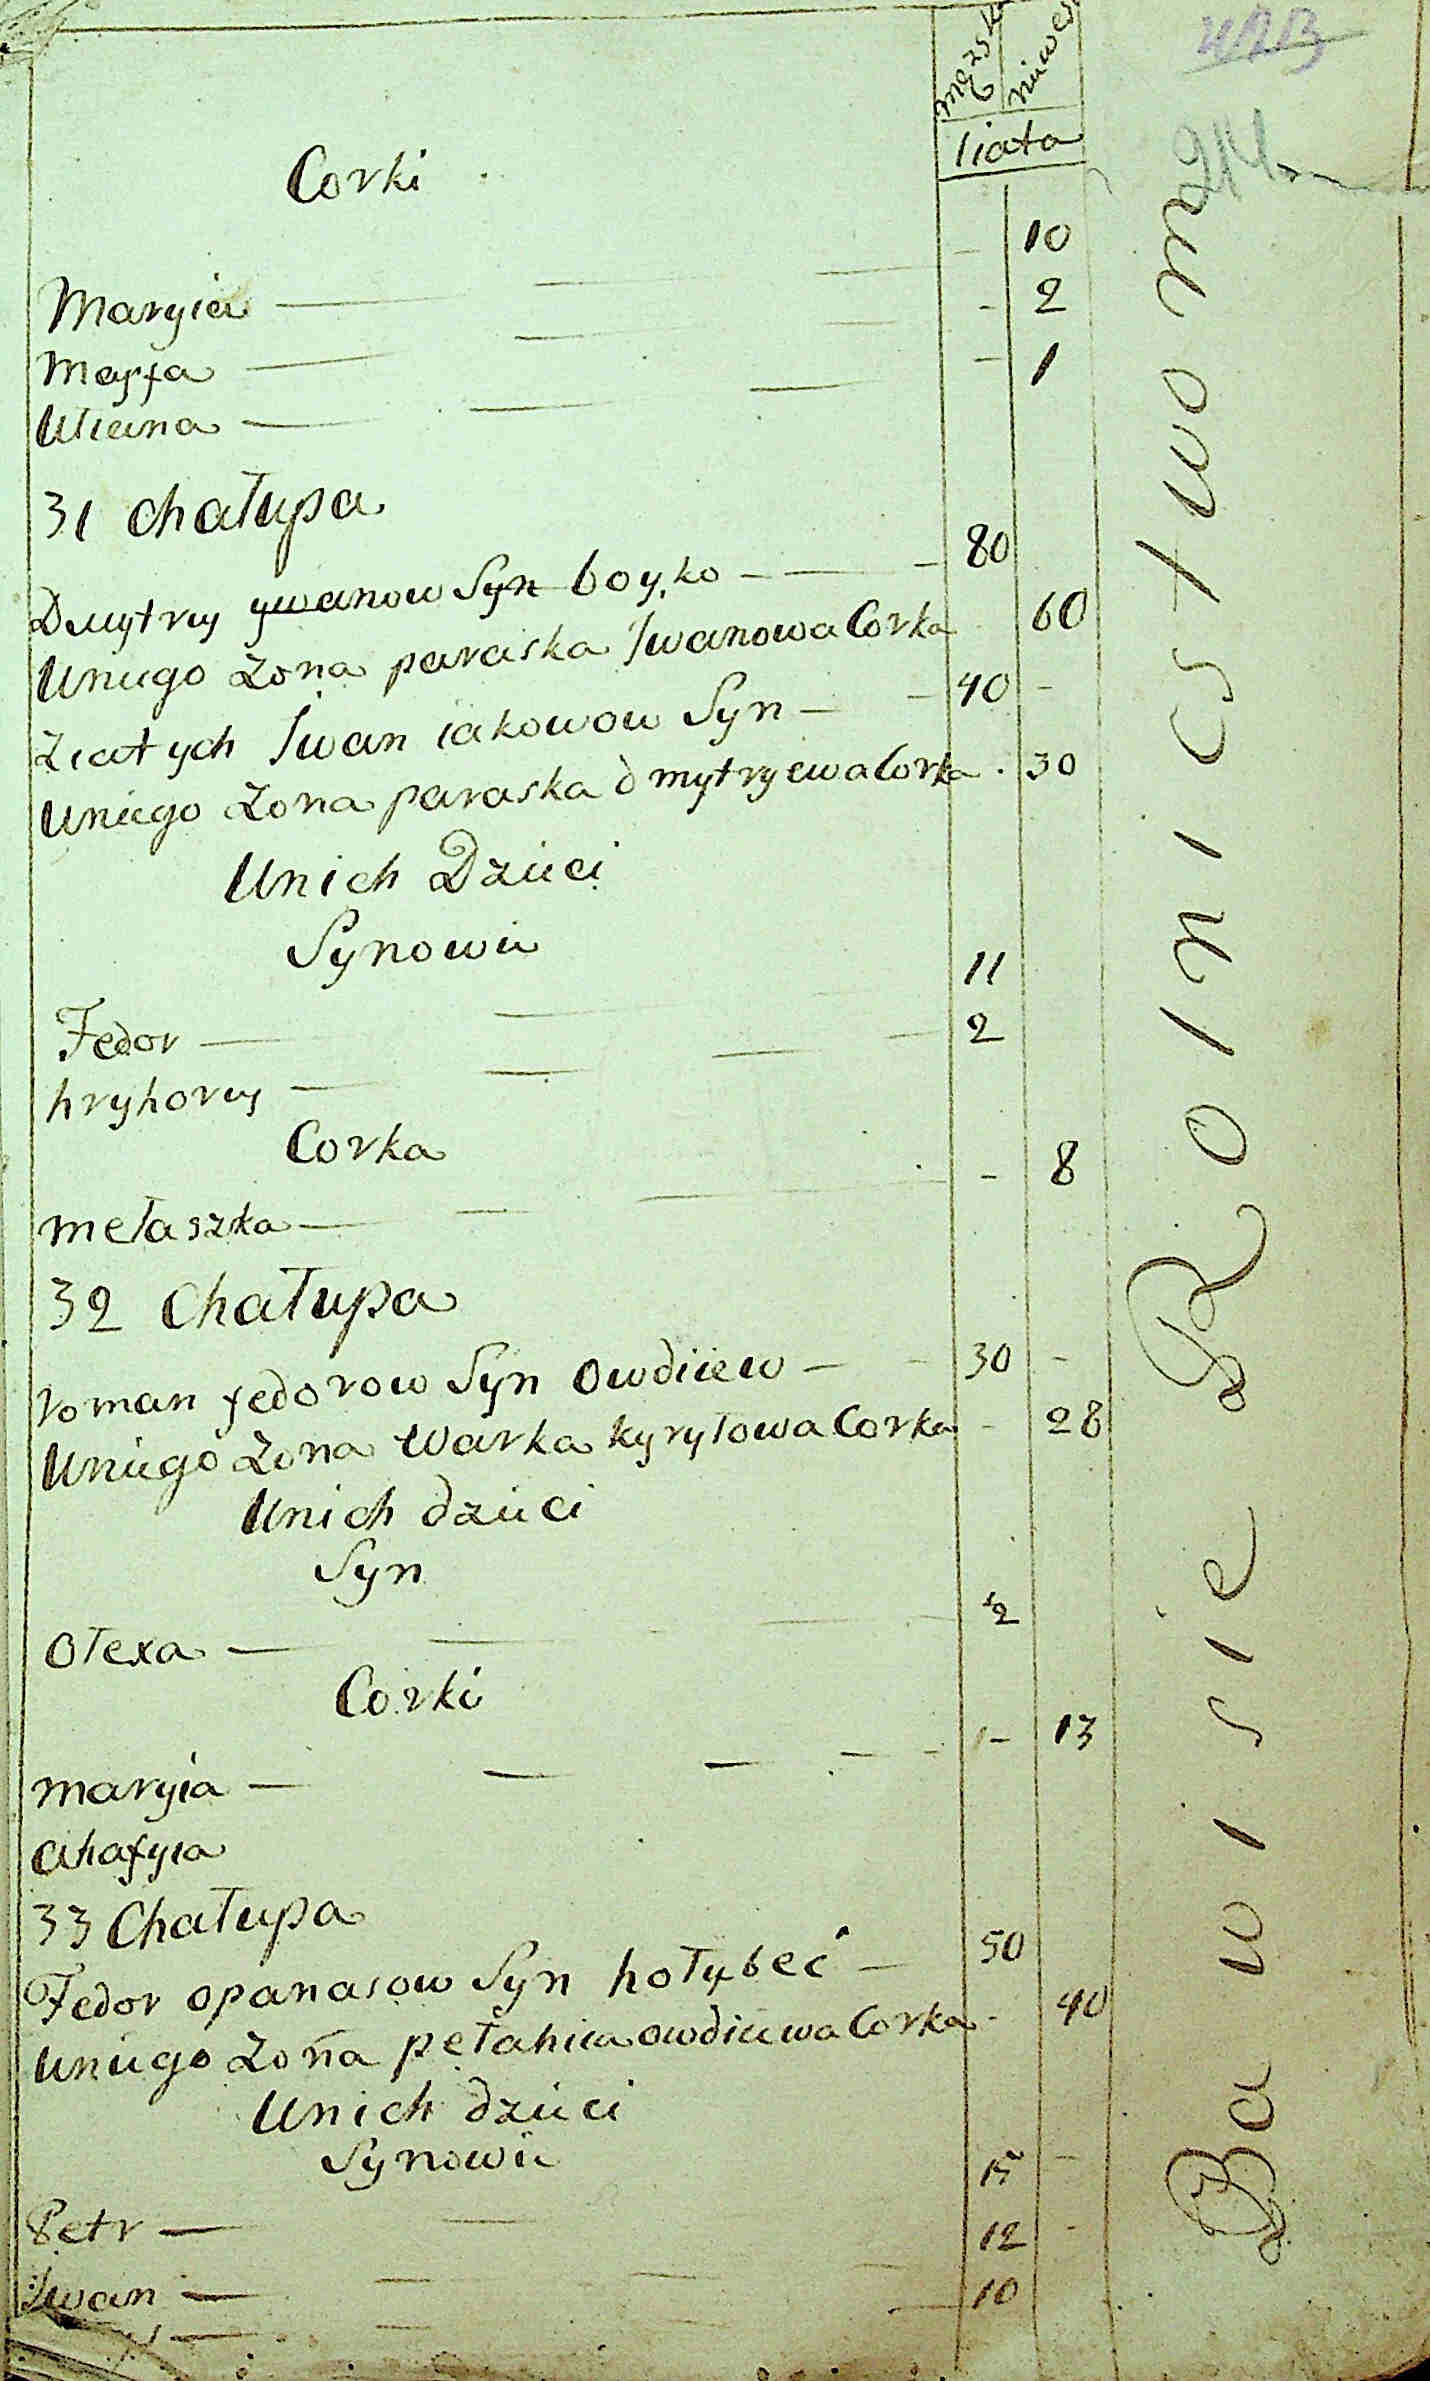 męzsk niwes
liata
214
Corki
Maryia — — — - 10
Marfa — — — - 2
Uliana — — — - 1
31 chałupa
Dmytry ywanow Syn boyko — — - 80
Uniego Zona paraska Iwanowa Corka 60
Ziat ych Iwan iakowow Syn — - 40 -
Uniego Zona paraska dmytryewa Corka . 30
Unich Dzieci
Synowie
Fedor — — 11
hryhory — — — - 2
Corka
mełaszka — — — - 8
32 Chałupa
roman fedorow Syn Owdiiew — - 30 -
Uniego Zona Warka kyryłowa Corka - 28
Unich dzieci
Syn
Ołexa — — — ½
Corki
maryia — — — — - 13
Ahafyia
33 Chałupa
Fedor opanasow Syn hołybeć — 50
Uniego Zona pełahia owdiiewa Corka - 40
Unich dzieci
Synowie
Petr — — 15 -
Iwan — — — 12 -
10
Bawisie Rolnictwom